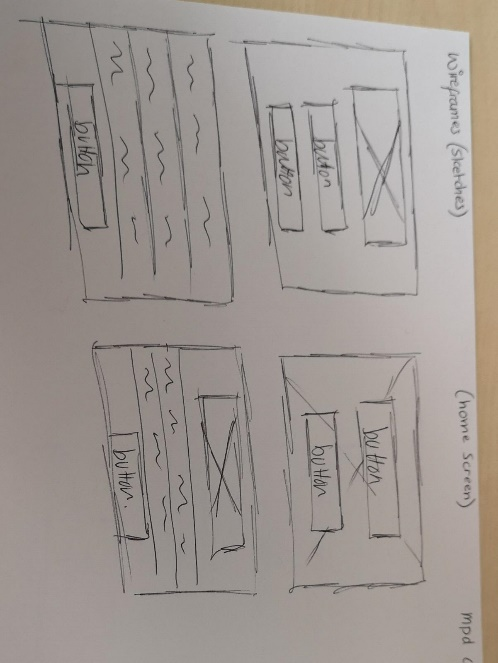 Wireframes (Sketches) (home screen) mpd
button
button
button
button
button
button.